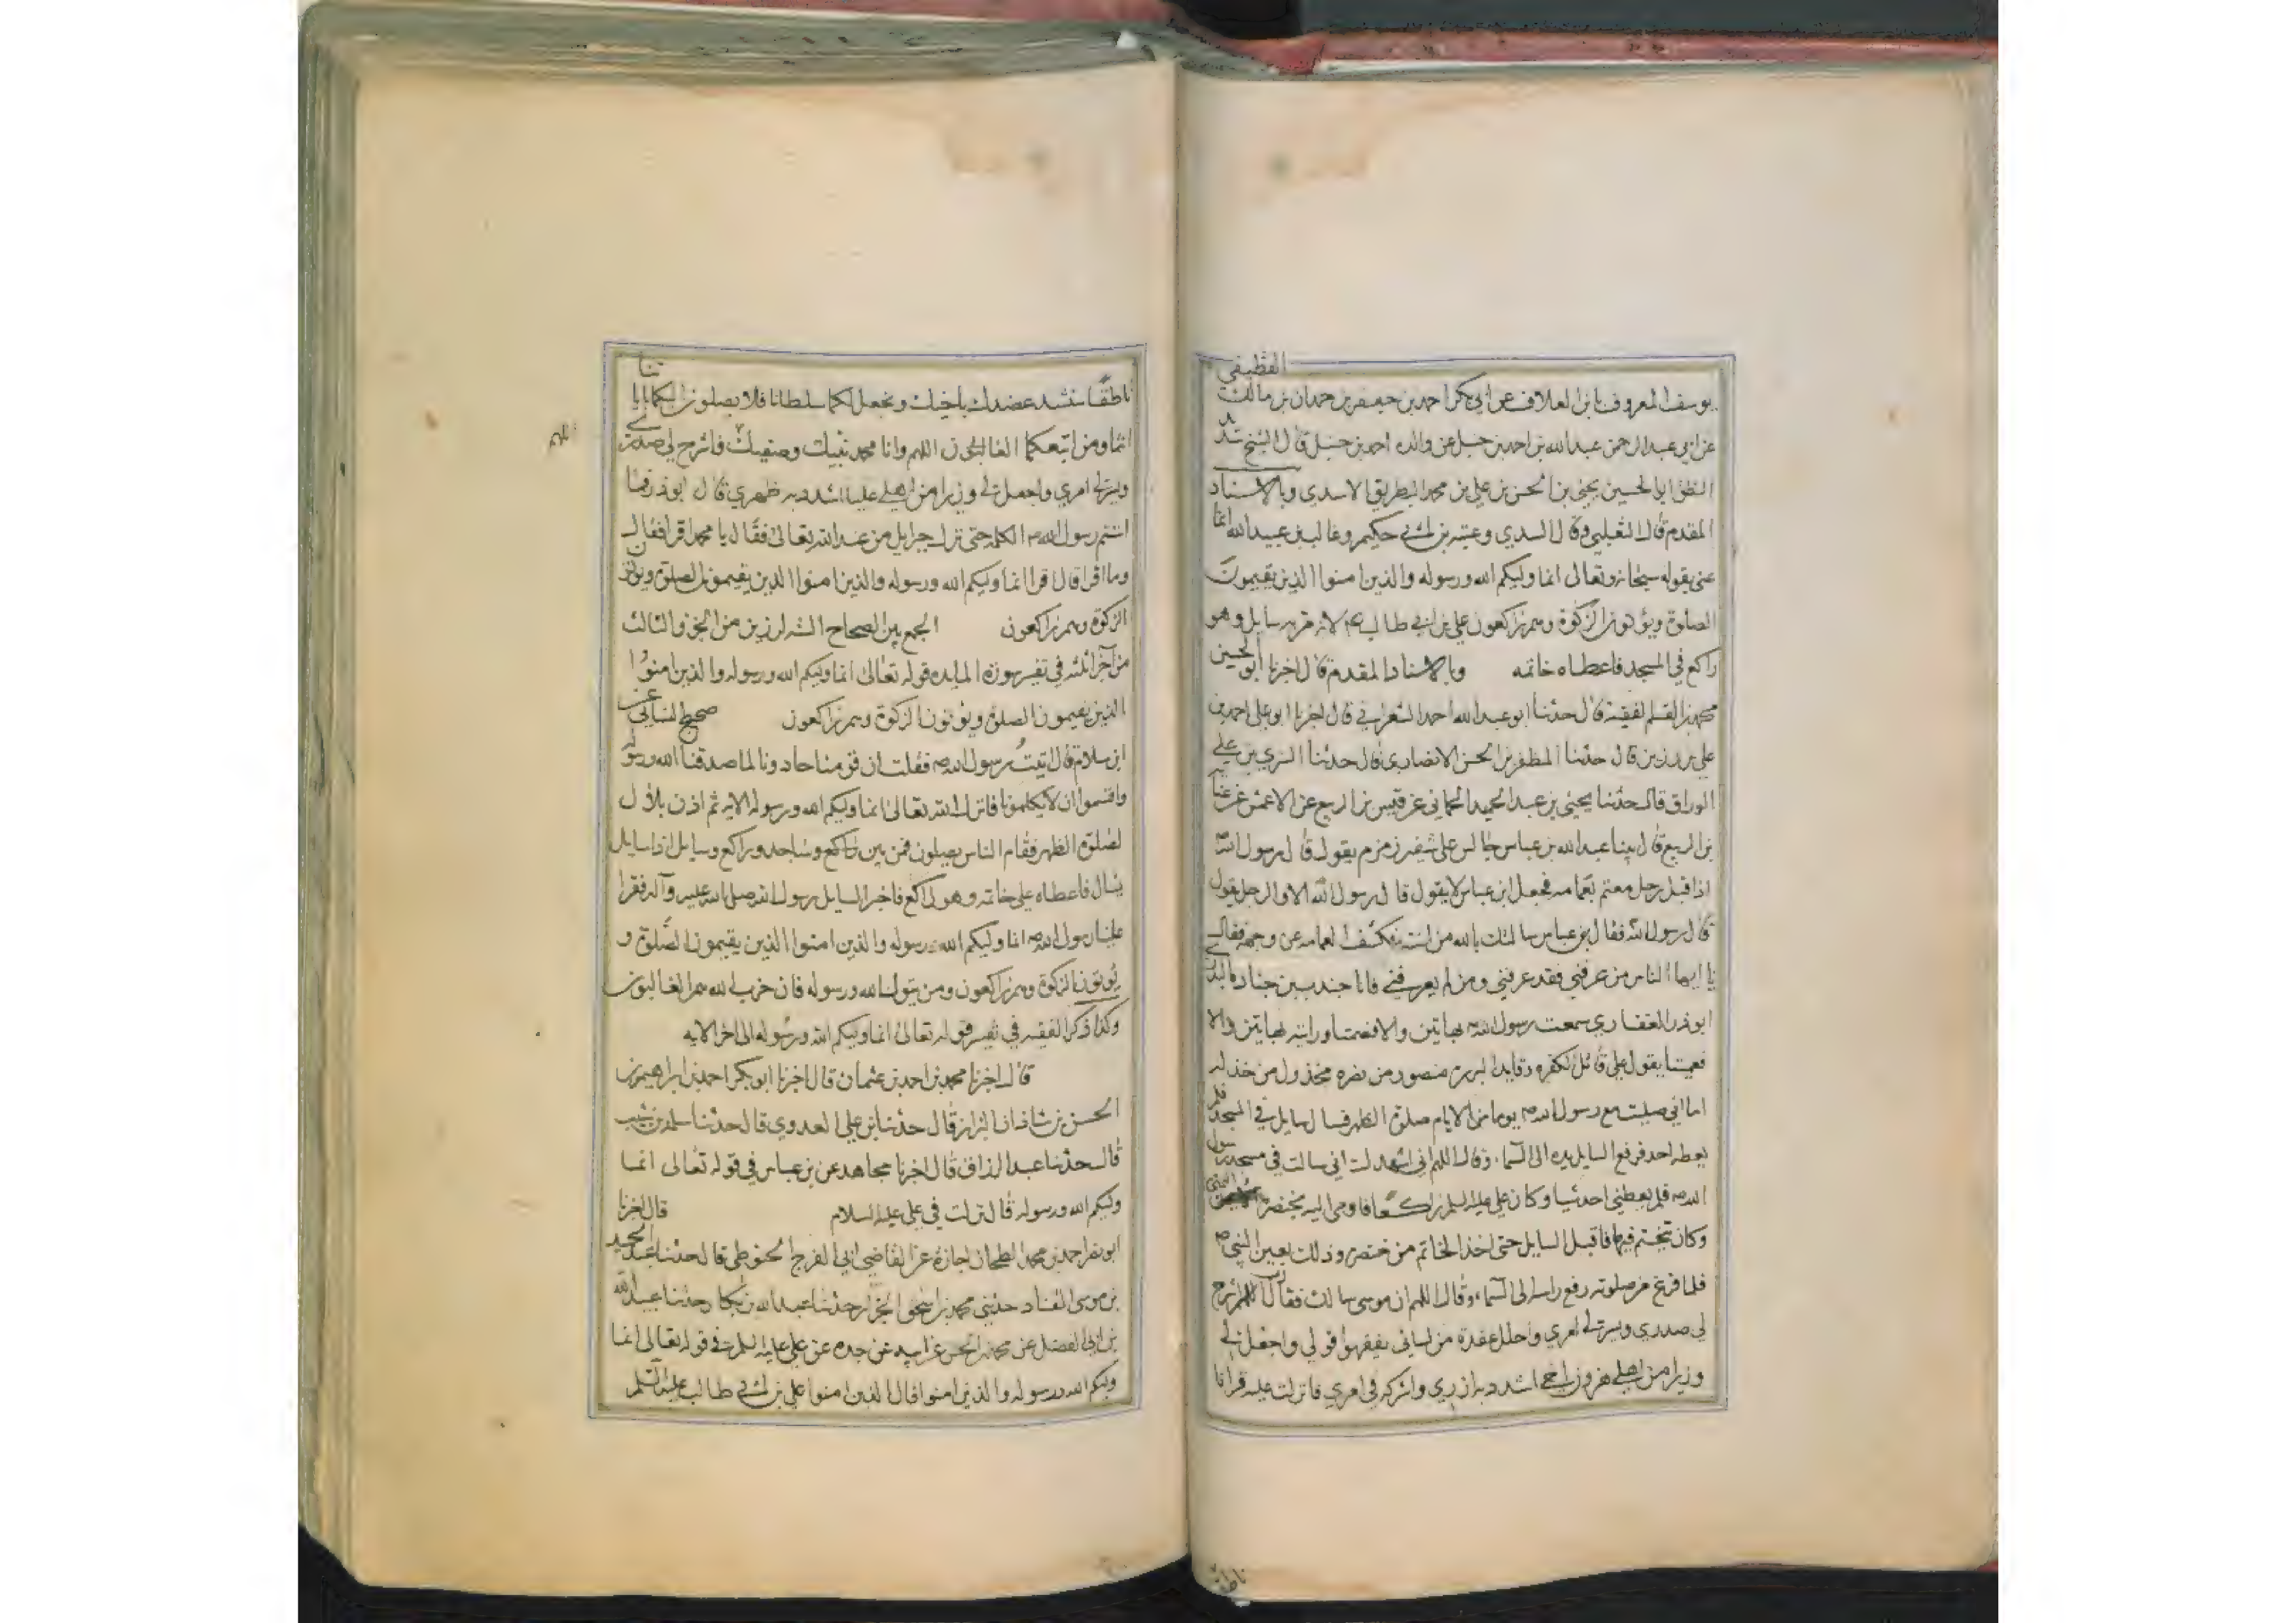 القطيفي
يوسف المعروف بابن العلاف عن ابي بكر احمد بن جعفر بن حمدان بن مالك
عن ابي عبد الرحمن عبد الله بن احمد بن حنبل عن والده احمد بن حنبل قال الشيخ
ابا الحسين يحيى بن الحسن بن علي بن محمد البطريق الاسدي وبالاسناد
المقدم قال الثعلبي وقال السدي وعتبه بن ابي حكيم وغالب بن عبيد الله انما
عنى بقوله سبحانه وتعالى انما وليكم الله ورسوله والذين امنوا الذين يقيمون
الصلوة ويؤتون الزكوة وهم راكعون علي بن ابي طالب ع لانه مر به سايل وهو
راكع في المسجد فاعطاه خاتمه وبالاسناد المقدم قال اخبرنا ابو الحسين
محمد بن القسم الفقيه قال حدثنا ابو عبد الله احمد الشعراني قال اخبرنا ابو علي احمد بن
علي بن رزين قال حدثنا المظفر بن الحسن الانصاري قال حدثنا السري بن علي
الوراق قال حدثنا يحيى بن عبد الحميد الحماني عن قيس بن الربيع عن الاعمش عن
بن الربيع قال بينا عبد الله بن عباس جالس على شفير زمزم يقول قال رسول الله
اذا قبل رجل معتم بعمامه فجعل ابن عباس لا يقول قال رسول الله الا والرجل يقول
قال رسول الله فقال بن عباس سالتك بالله من انت فكشف العمامه عن وجهه فقال
يا ايها الناس من عرفني فقد عرفني ومن لم يعرفني فانا جندب بن جناده البدري
ابو ذر الغفاري سمعت رسول الله ص بهاتين والا فصمتا ورايته بهاتين والا
فعميتا يقول علي قائل الكفره وقايد البرره منصور من نصره مخذول من خذله
اما اني صليت مع رسول الله ص يوما من الايام صلوة الظهر فسال سايل في المسجد فلم
يعطه احد فرفع السايل يده الى السماء وقال اللهم اني اشهدك اني سالت في مسجد رسول
الله ص فلم يعطني احد شيا وكان علي عليه السلم راكعا فاومى اليه بخنصره اليمنى
وكان يتختم فيها فاقبل السايل حتى اخذ الخاتم من خنصره وذلك بعين النبي ص
فلما فرغ من صلوته رفع راسه الى السماء وقال اللهم ان موسى سالك فقال رب اشرح
لي صدري ويسر لي امري واحلل عقدة من لساني يفقهوا قولي واجعل لي
وزيرا من اهلي هرون اخي اشدد به ازري واشركه في امري فانزلت عليه قرانا
ناطقا
ناطقا سنشد عضدك باخيك ونجعل لكما سلطانا فلا يصلون اليكما باياتنا
انتما ومن اتبعكما الغالبون اللهم وانا محمد نبيك وصفيك فاشرح لي صدري
ويسر لي امري واجعل لي وزيرا من اهلي عليا اشدد به ظهري قال ابو ذر فما
استتم رسول الله ص الكلمه حتى نزل جبرايل من عند الله تعالى فقال يا محمد اقرا فقال
وما اقرا قال اقرا انما وليكم الله ورسوله والذين امنوا الذين يقيمون الصلوة ويؤتون
الزكوة وهم راكعون الجمع بين الصحاح الستة لرزين من الجزو الثالث
من آخر ثلثه في تفسير سورة المايده قوله تعالى انما وليكم الله ورسوله والذين امنوا
الذين يقيمون الصلوة ويؤتون الزكوة وهم راكعون صحيح النسائي عن
ابن سلام قال اتيت رسول الله ص فقلت ان قومنا حادونا لما صدقنا الله ورسوله
واقسموا ان لا يكلمونا فانزل الله تعالى انما وليكم الله ورسوله الايه ثم اذن بلال
لصلوة الظهر فقام الناس يصلون فمن بين راكع وساجد وراكع وسايل اذا سايل
يسال فاعطاه علي خاتمه وهو راكع فاخبر السايل رسول الله صلى الله عليه وآله فقرا
علينا رسول الله ص انما وليكم الله ورسوله والذين امنوا الذين يقيمون الصلوة و
يؤتون الزكوة وهم راكعون ومن يتول الله ورسوله فان حزب الله هم الغالبون
وكذا ذكر الفقيه في تفسير قوله تعالى انما وليكم الله ورسوله الى اخر الايه
قال اخبرنا محمد بن احمد بن عثمان قال اخبرنا ابو بكر احمد بن ابراهيم بن
الحسن بن شاذان البزاز قال حدثنا بن علي العدوي قال حدثنا سلمة بن شبيب
قال حدثنا عبد الرزاق قال اخبرنا مجاهد عن بن عباس في قوله تعالى انما
وليكم الله ورسوله قال نزلت في علي عليه السلام قال اخبرنا
ابو نصر احمد بن محمد الطحان اجازة عن القاضي ابي الفرج الحنوطي قال حدثنا عبد الحميد
بن موسى القناد حدثني محمد بن اسحق الخزاز حدثنا عبد الله بن بكار حدثنا عبيد الله
بن ابي الفضل عن محمد بن الحسن عن ابيه عن جده عن علي عليه السلم في قوله تعالى انما
وليكم الله ورسوله والذين امنوا قال الذين امنوا علي بن ابي طالب عليه السلم